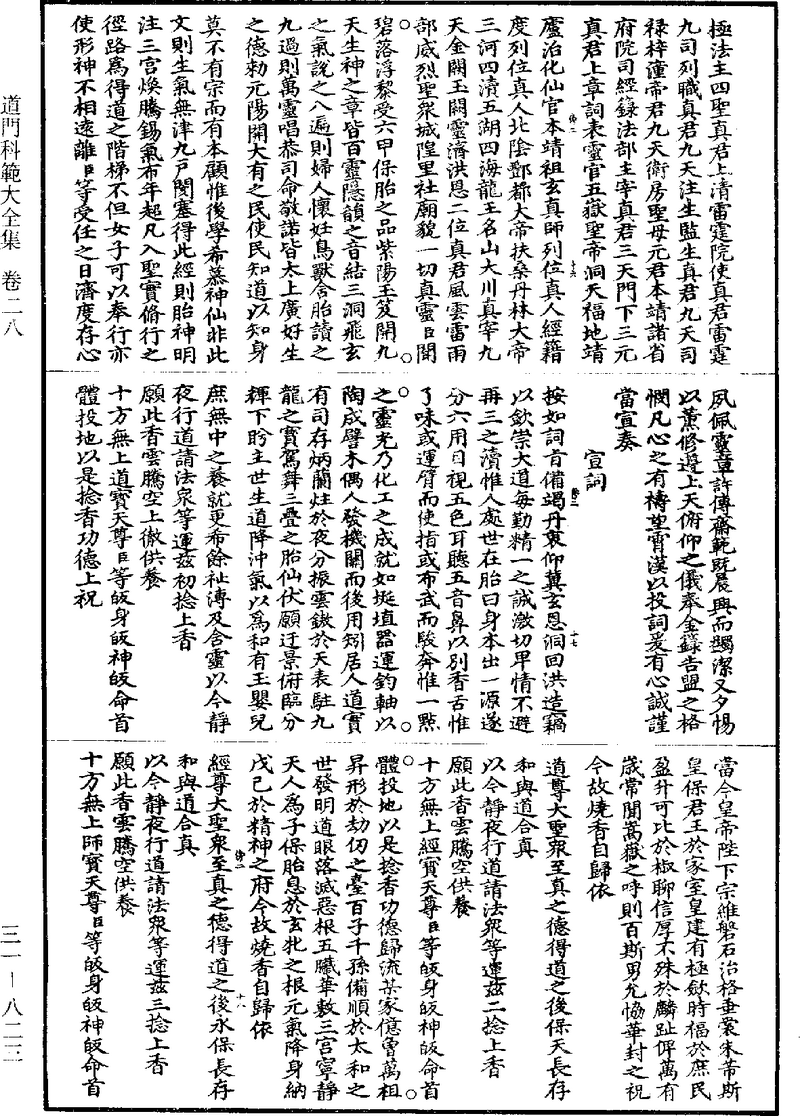 極法主四聖真君上清雷霆院使真君雷霆
九司列職真君九天注生監生真君九天司
祿梓潼帝君九天衛房聖母元君本靖諸省
府院司經籙法部主宰真君三天門下三元
真君上章詞表靈官五嶽聖帝洞天福地靖
廬治化仙官本靖祖玄真師列位真人經籍
度列位真人北陰酆都大帝扶桑丹林大帝
三河四瀆五湖四海龍王名山大川真宰九
天金闕玉闕靈濟洪恩二位真君風雲雷雨
部威烈聖眾城隍里社廟貌一切真靈臣聞
碧落浮黎受六甲保胎之品紫陽玉笈開九
天生神之章皆百靈隱韻之音結三洞飛玄
之氣說之八遍則婦人懷妊鳥獸含胎讀之
九過則萬靈唱恭司命敬諾皆太上廣好生
之德勑元陽開大有之民使民知道以知身
莫不有宗而有本顧惟後學希慕神仙非此
文則生氣無津九戶閉塞得此經則胎神明
注三宮煥騰錫氣布年超凡入聖實脩行之
徑路為得道之階梯不但女子可以奉行亦
使形神不相遠離臣等受任之日濟度存心
夙佩靈章許傳齋範既晨興而蠲潔又夕惕
以薰修遵上天俯仰之儀奉金籙告盟之格
憫凡心之有禱望霄漢以投詞爰有心誠謹
當宣奏
宣詞
按如詞首備竭丹衷仰冀玄恩洞回洪造竊
以欽崇大道每勤精一之誠激切卑情不避
再三之瀆惟人處世在胎曰身本出一源遂
分六用目視五色耳聽五音鼻以別香舌惟
了味或運臂而使指或布武而駿奔惟一點
之靈光乃化工之成就如埏埴器運鈞軸以
陶成譬木偶人發機關而後用矧居人道實
有司存炳蘭炷於夜分振雲璈於天表駐九
龍之寶駕舞三疊之胎仙伏願迂景俯臨分
輝下盻主世生道降沖氣以為和有王嬰兒
庶無中之養就更希餘祉溥及含靈以今靜
夜行道請法眾等運茲初捻上香
願此香雲騰空上徹供養
十方無上道寶天尊臣等皈身皈神皈命首
體投地以是捻香功德上祝
當今皇帝陛下宗維磐石治格垂裳朱芾斯
皇保君王於家室皇建有極歛時福於庶民
盈升可比於椒聊信厚不殊於麟趾俾萬有
歲常聞嵩嶽之呼則百斯男允恊華封之祝
今故燒香自歸依
道尊大聖眾至真之德得道之後保天長存
和與道合真
以今靜夜行道請法眾等運茲二捻上香
願此香雲騰空供養
十方無上經寶天尊臣等皈身皈神皈命首
體投地以是捻香功德歸流某家億曾萬祖
昇形於劫仞之臺百子千孫備順於太和之
世發明道眼落滅惡根五臟華敷三宮寧靜
天人為子保胎息於玄牝之根元氣降身納
戊己於精神之府今故燒香自歸依
經尊大聖眾至真之德得道之後永保長存
和與道合真
以今靜夜行道請法眾等運茲三捻上香
願此香雲騰空供養
十方無上師寶天尊臣等皈身皈神皈命首
道門科範大全集 卷二八
三一—八二三